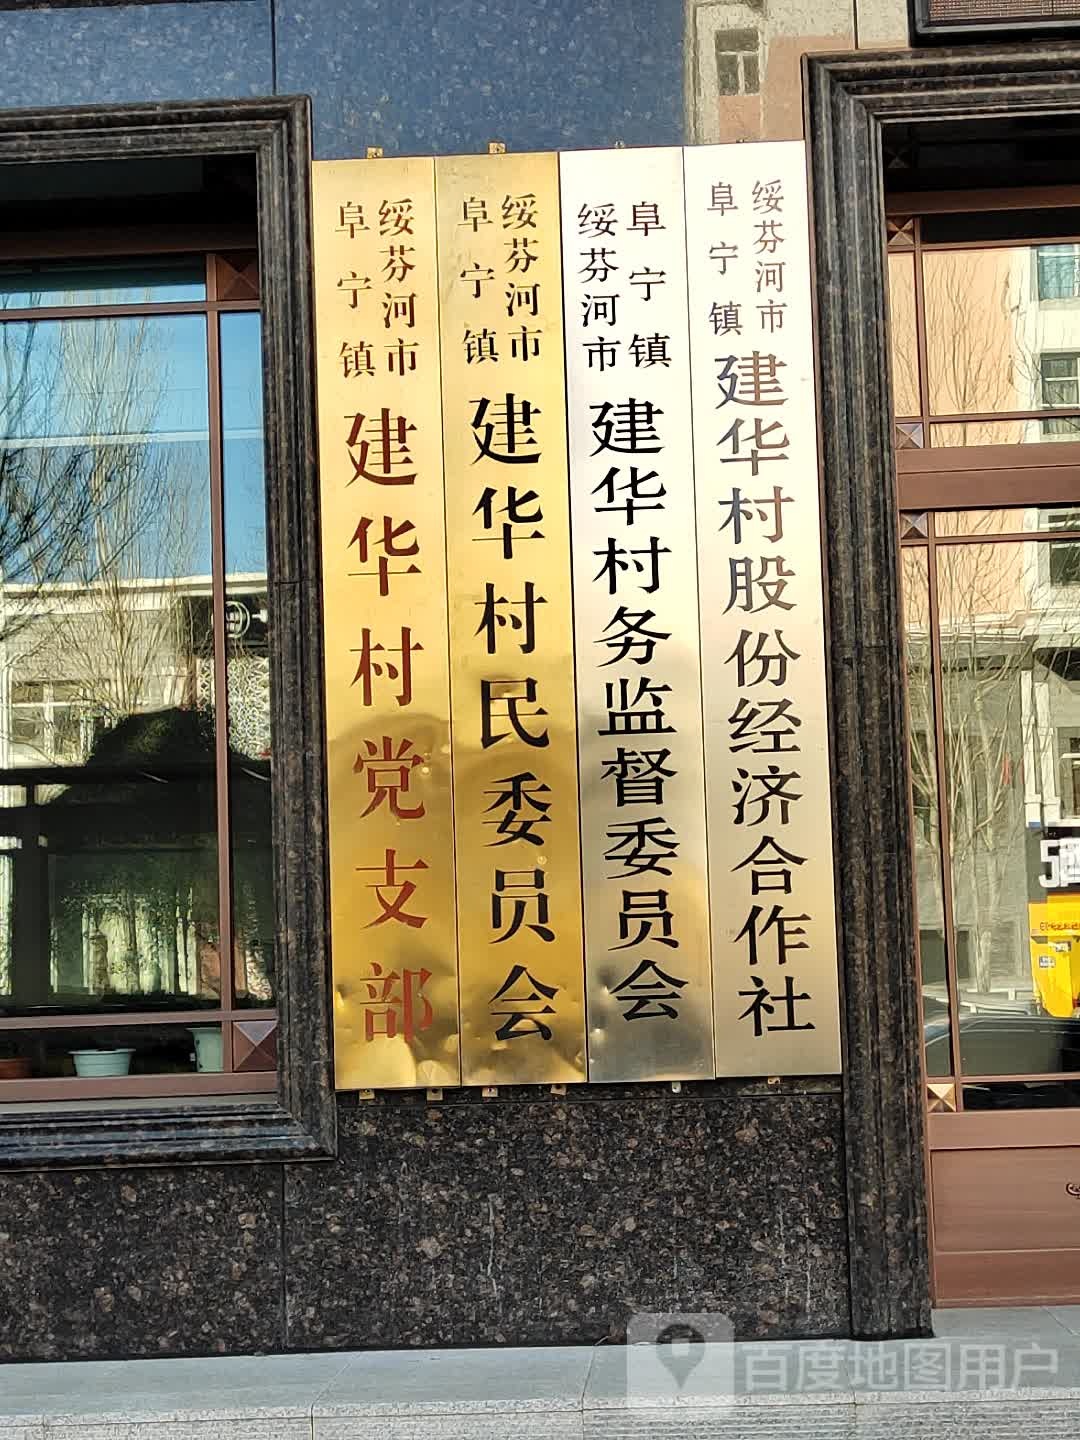 绥芬河市
阜宁镇
建华村党支部
绥芬河市
阜宁镇
建华村民委员会
绥芬河市
阜宁镇
建华村务监督委员会
绥芬河市
阜宁镇
建华村股份经济合作社
百度地图用户